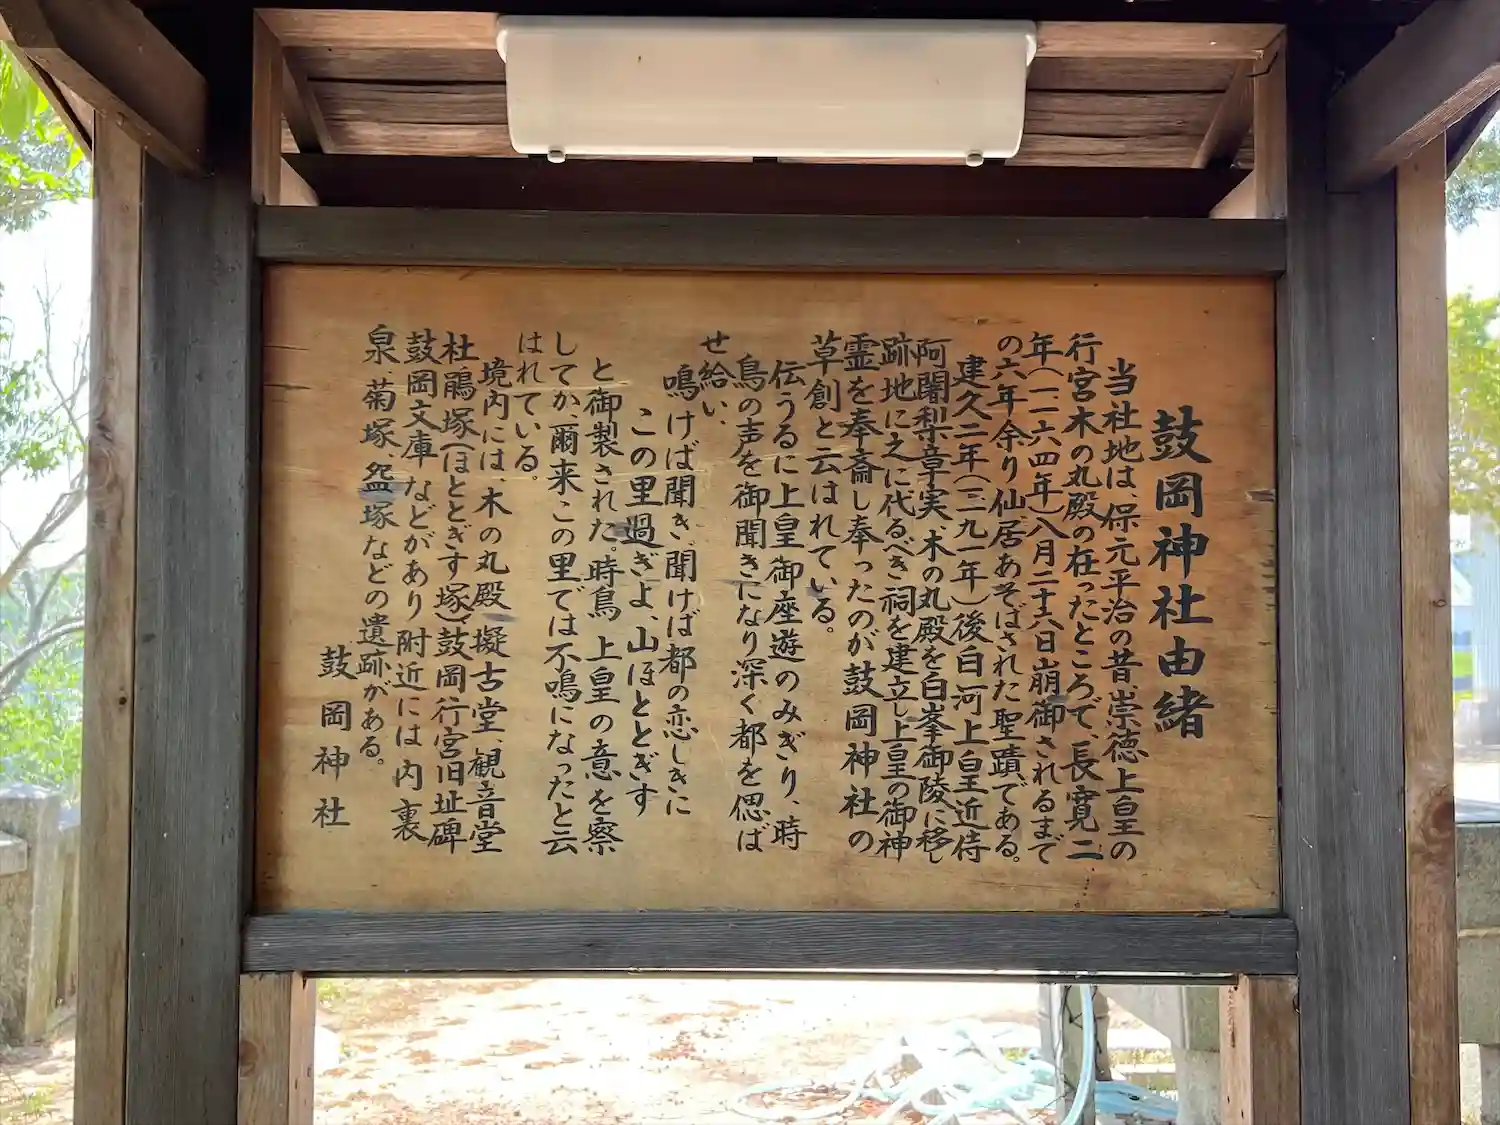 鼓岡神社由緒
当社地は、保元平治の昔、崇徳上皇の
行宮木の丸殿の在ったところで、長寛二
年(一一六四年)八月二十六日崩御されるまで
の六年余り仙居あそばされた聖蹟である。
建久二年(一一九一年)後白河上皇近侍
阿闍梨章実、木の丸殿を白峯御陵に移し
跡地に之に代るべき祠を建立し上皇の御神
霊を奉斎し奉ったのが鼓岡神社の
草創と云はれている。
伝うるに上皇御座遊のみぎり、時
鳥の声を御聞きになり深く都を偲ば
せ給い、
鳴けば聞き、聞けば都の恋しきに
この里過ぎよ、山ほととぎす
と御製された。時鳥上皇の意を察
してか、爾来この里では不鳴になったと云
はれている。
境内には、木の丸殿、擬古堂、観音堂
杜鵑塚(ほととぎす塚)鼓岡行宮旧址碑
鼓岡文庫などがあり附近には内裏
泉、菊塚、盌塚などの遺跡がある。
鼓岡神社